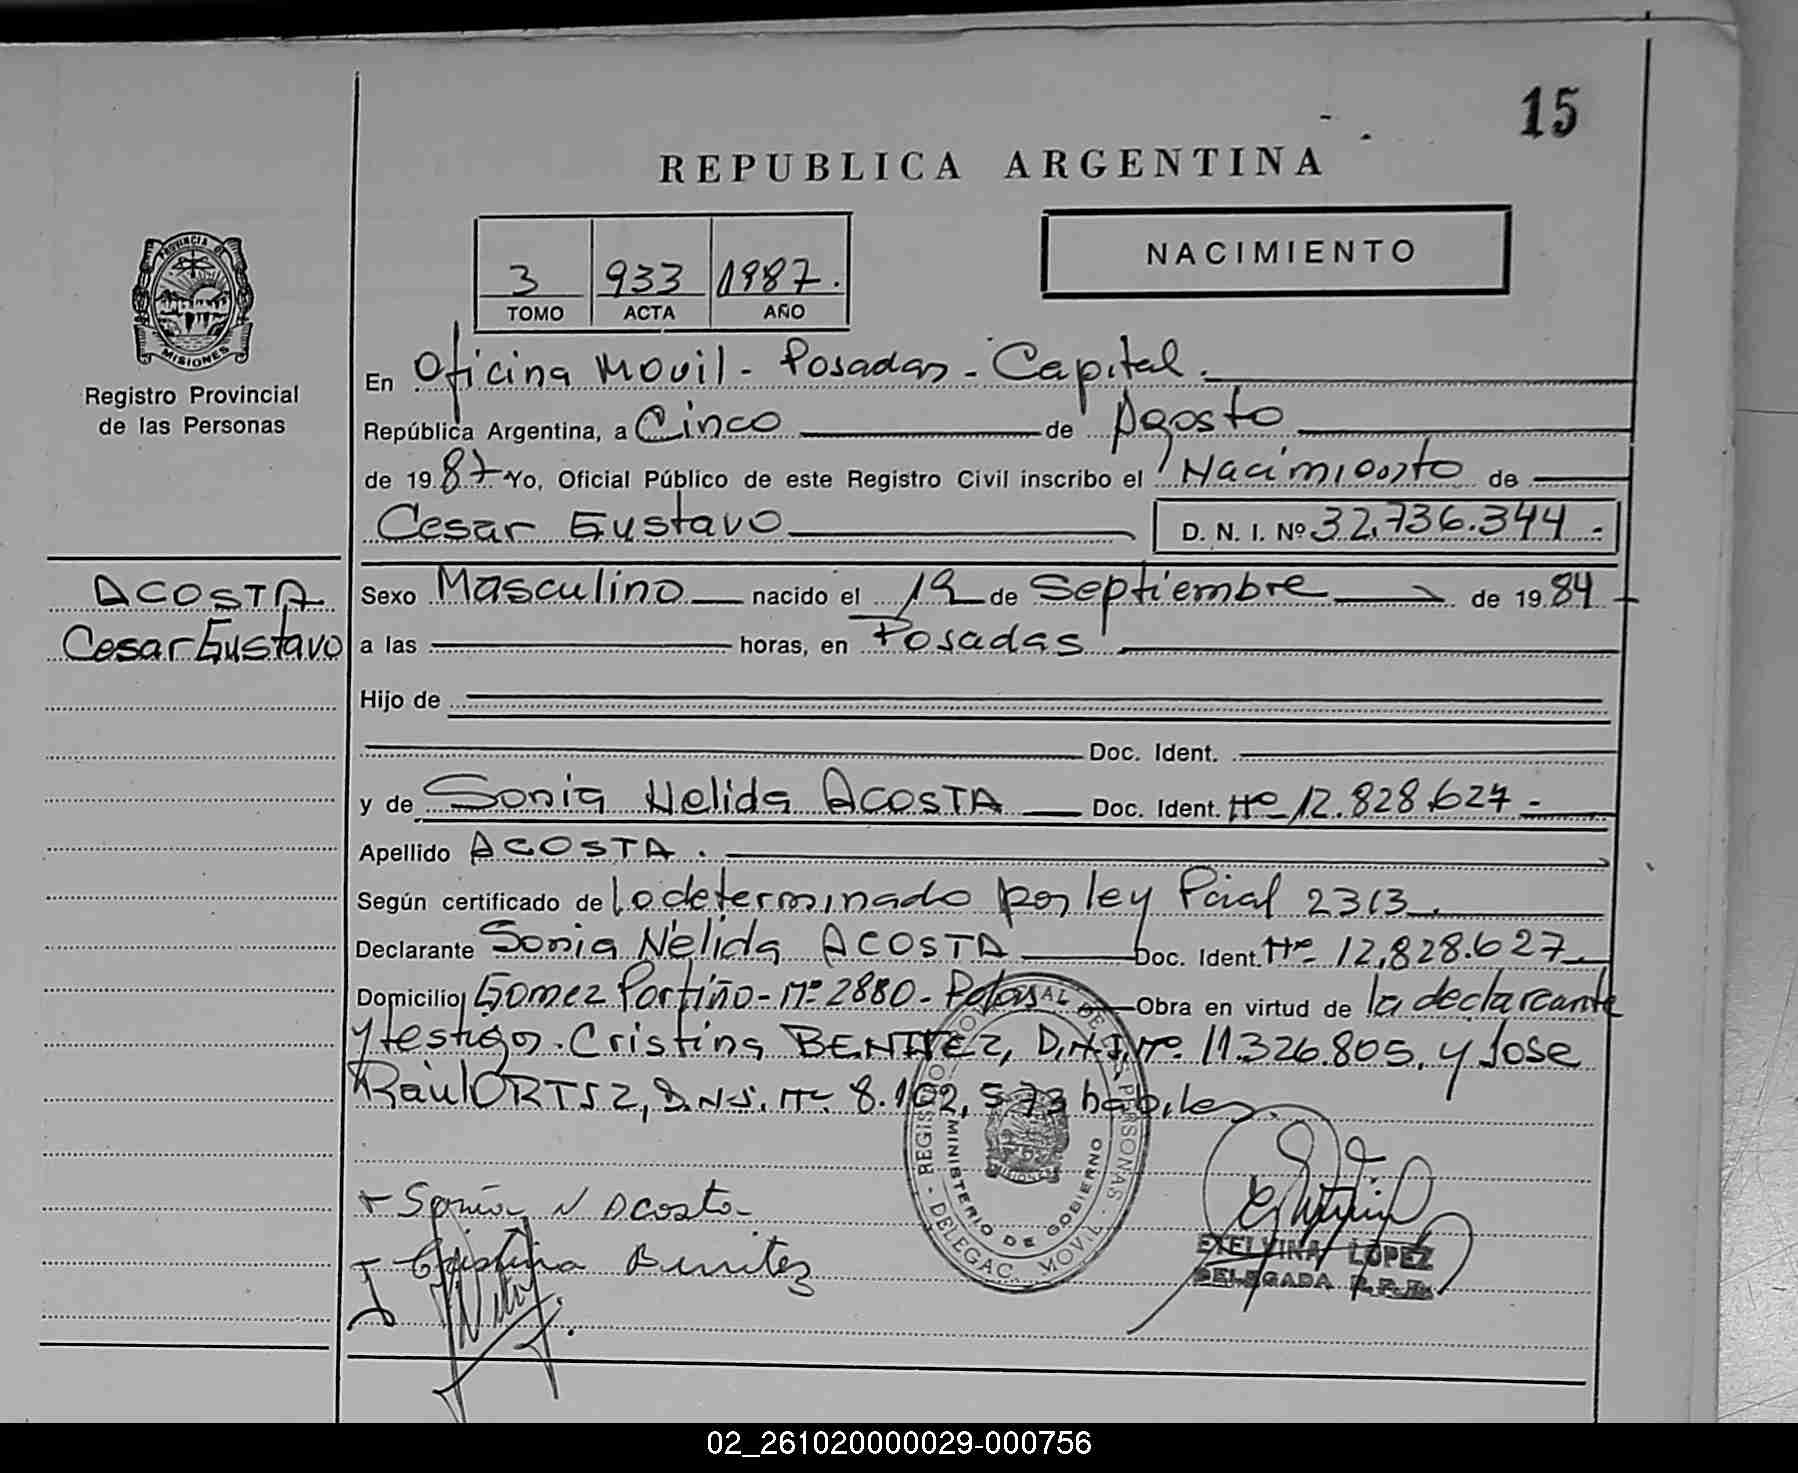 15
REPUBLICA ARGENTINA
NACIMIENTO
3 933 1987.
TOMO ACTA AÑO
PROVINCIA DE MISIONES
Registro Provincial
de las Personas
ACOSTA
Cesar Gustavo
En Oficina Movil - Posadas - Capital.
República Argentina, a Cinco de Agosto
de 1987 Yo, Oficial Público de este Registro Civil inscribo el Nacimiento de
Cesar Gustavo D. N. I. Nº 32.736.344.-
Sexo Masculino nacido el 19 de Septiembre de 1984
a las horas, en Posadas
Hijo de
Doc. Ident.
y de Sonia Nelida ACOSTA Doc. Ident. Nº 12.828.627-
Apellido ACOSTA.
Según certificado de lo determinado por ley Pcial 2313.
Declarante Sonia Nélida ACOSTA Doc. Ident. Nº 12.828.627
Domicilio Gomez Portiño - Nº 2880 - Obra en virtud de la declarante
y testigos. Cristina BENITEZ, D.N.I. Nº 11.326.805, y Jose
Raúl ORTIZ, D.N.I. Nº 8.102.573 habiles.
REGISTRO PROVINCIAL DE LAS PERSONAS - DELEGAC. MOVIL -
MINISTERIO DE GOBIERNO
MISIONES
Sonia N Acosta
Cristina Benitez
ETELVINA LOPEZ
DELEGADA R.P.P.
02_261020000029-000756